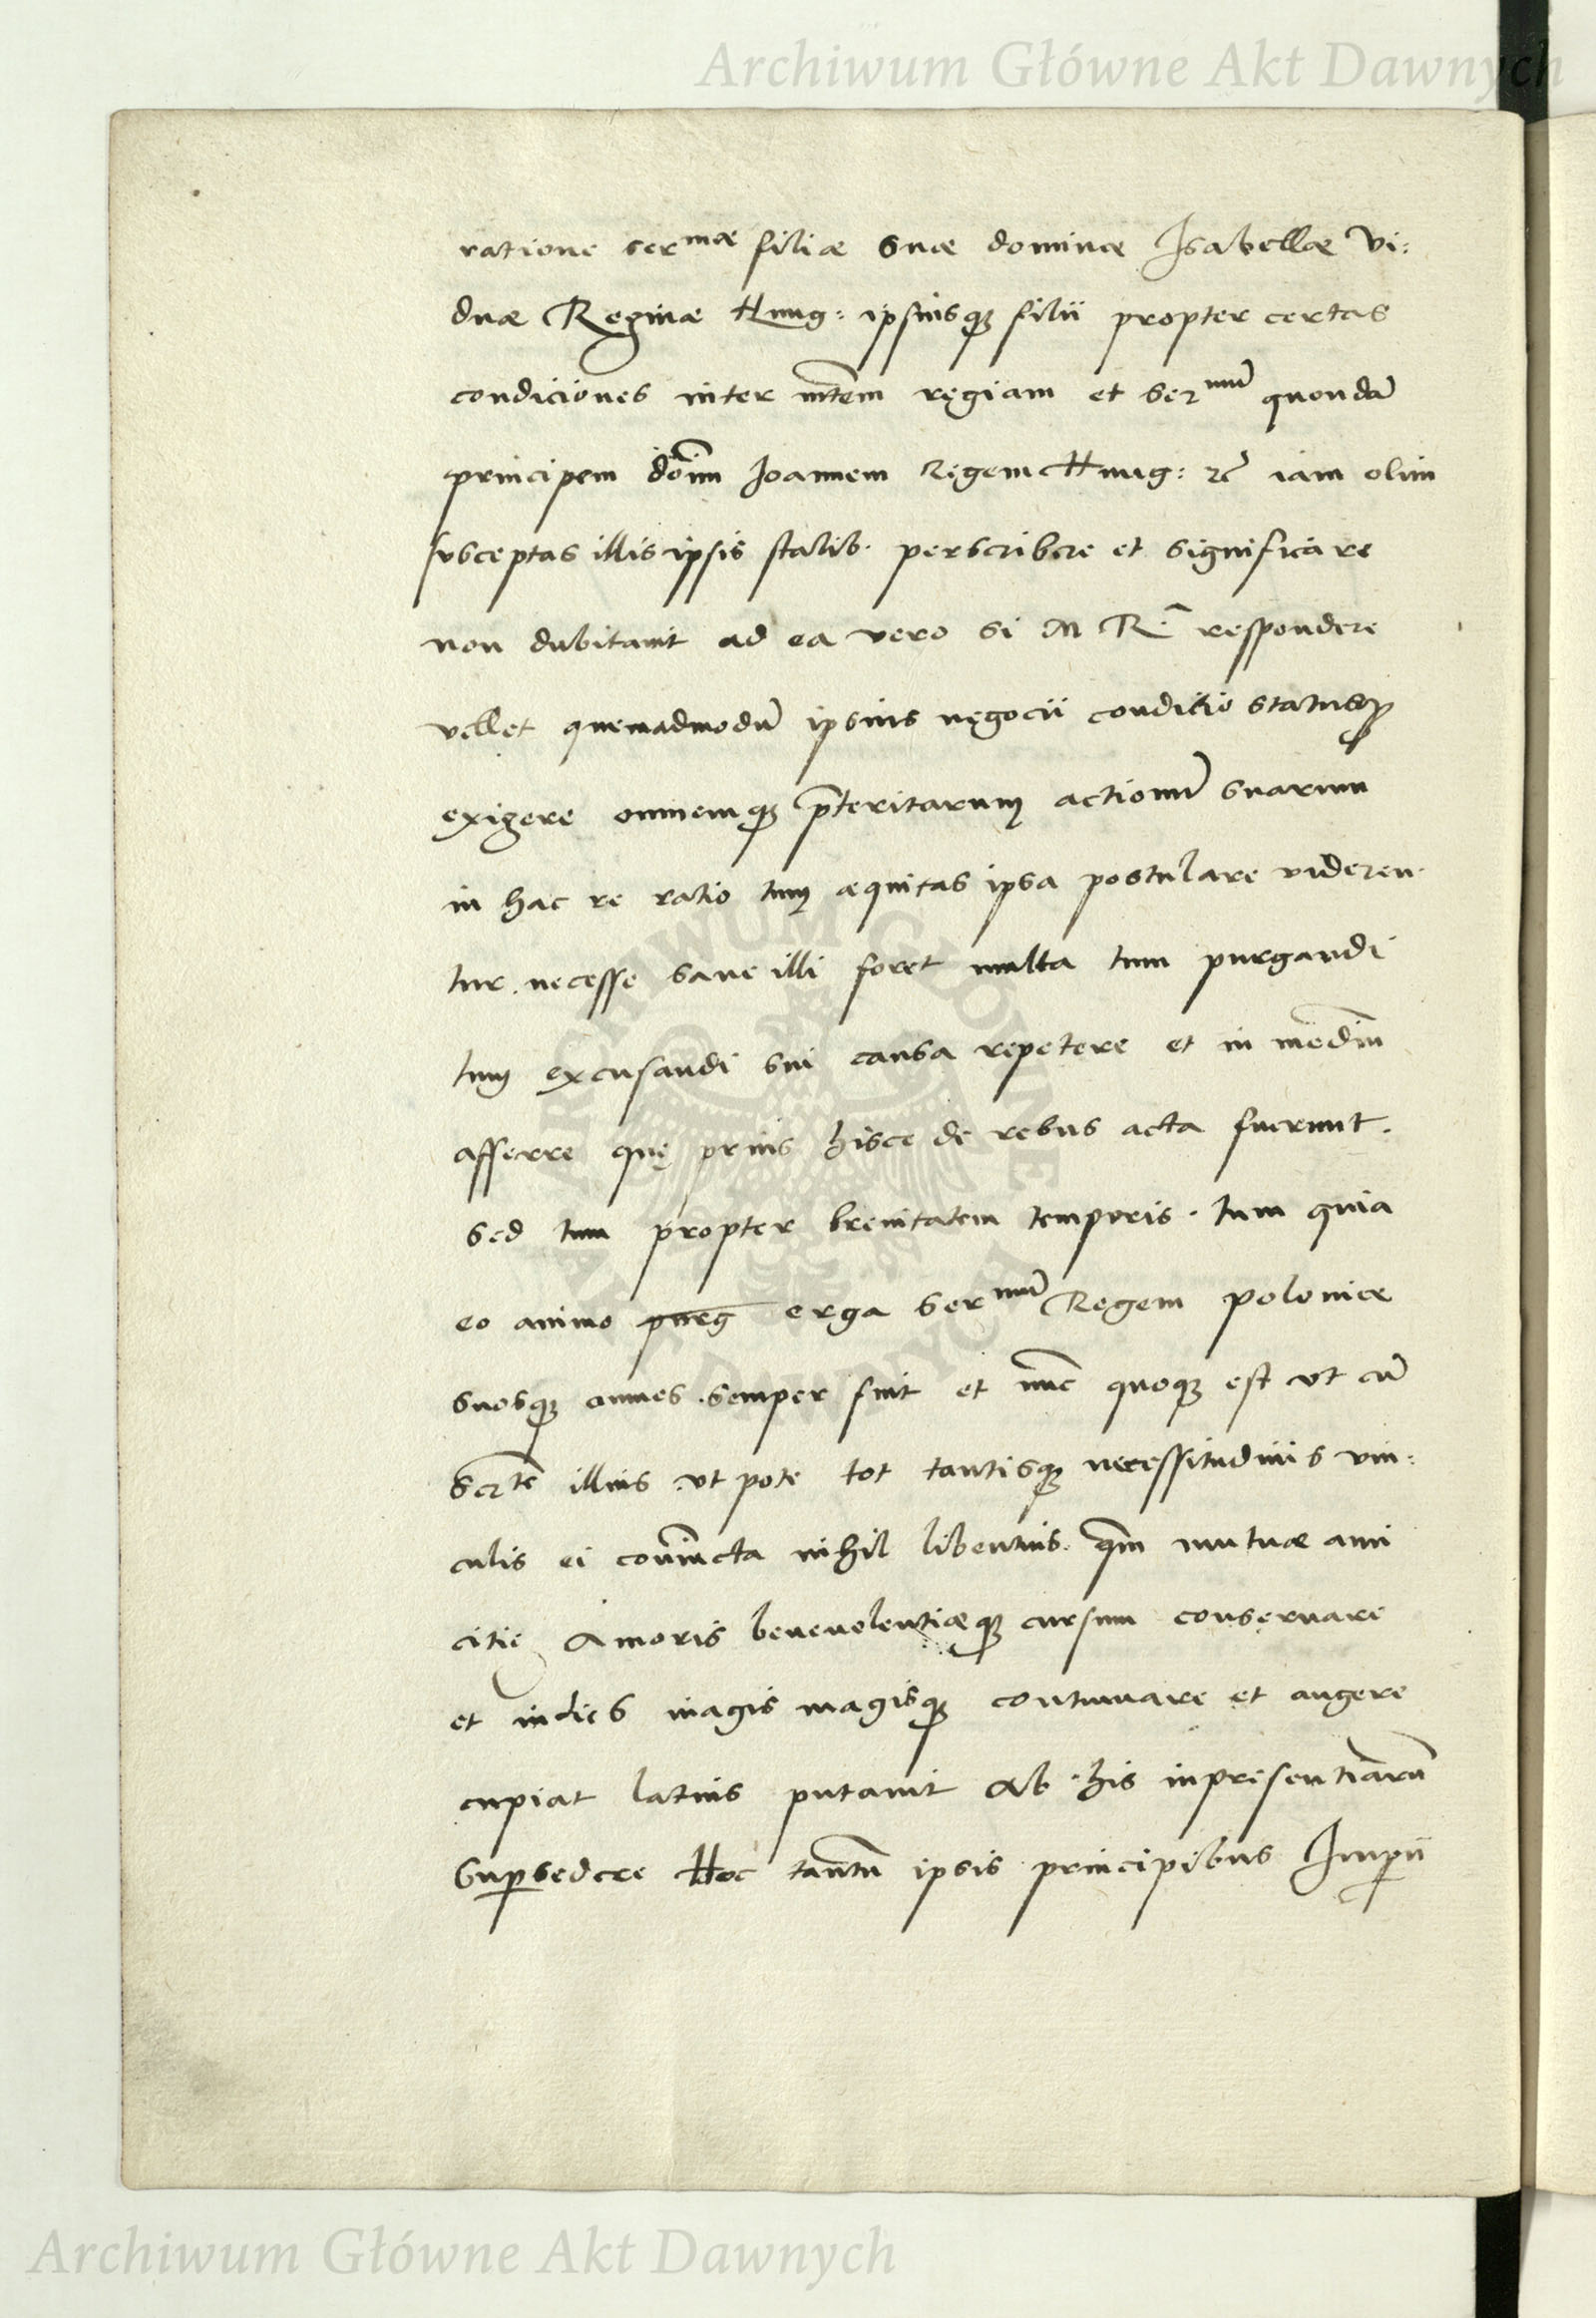 Archiwum Główne Akt Dawnych
ratione serᵐᵃᵉ filiæ suæ dominæ Isabellæ Vi:
duæ Reginæ Hung: ipsiusq₃ filii propter certas
condiciones inter mtēm regiam et serᵐᵘ̄ quondā
principem doīm Ioannem Regem Hung: ꝛc̄ iam olim
susceptas illis ipsis statib. perscribere et significare
non dubitauit ad ea vero si M R. respondere
vellet quemadmodū ipsius negocii condicio statusq₃
exigere omnemq₃ p̄teritarum actionū suarum
in hac re ratio tum æquitas ipsa postulare videren.
tur. necesse sane illi foret multa tum purgandi
tum excusandi sui causa repetere et in mediū
afferre quę prius hisce de rebus acta fuerunt.
sed tum propter breuitatem temporis. tum quia
eo animo erga serᵐᵘ̄ Regem poloniæ
suosq₃ omnes semper fuit et nūc quoq₃ est vt cū
Serᵗᵉ illius vt pote tot tantisq₃ necessitudinis vin:
culis ei coniūcta nihil libentius. qm̄ mutuæ ami
citię Amoris beneuolentiæq₃ cursum conseruare
et indies magis magisq₃ continuare et augere
cupiat latius putauit Ab his inpresentiarū
Suꝑsedere Hoc tantū ipsis principibus Imꝑii
ARCHIWUM GŁÓWNE AKT DAWNYCH
Archiwum Główne Akt Dawnych